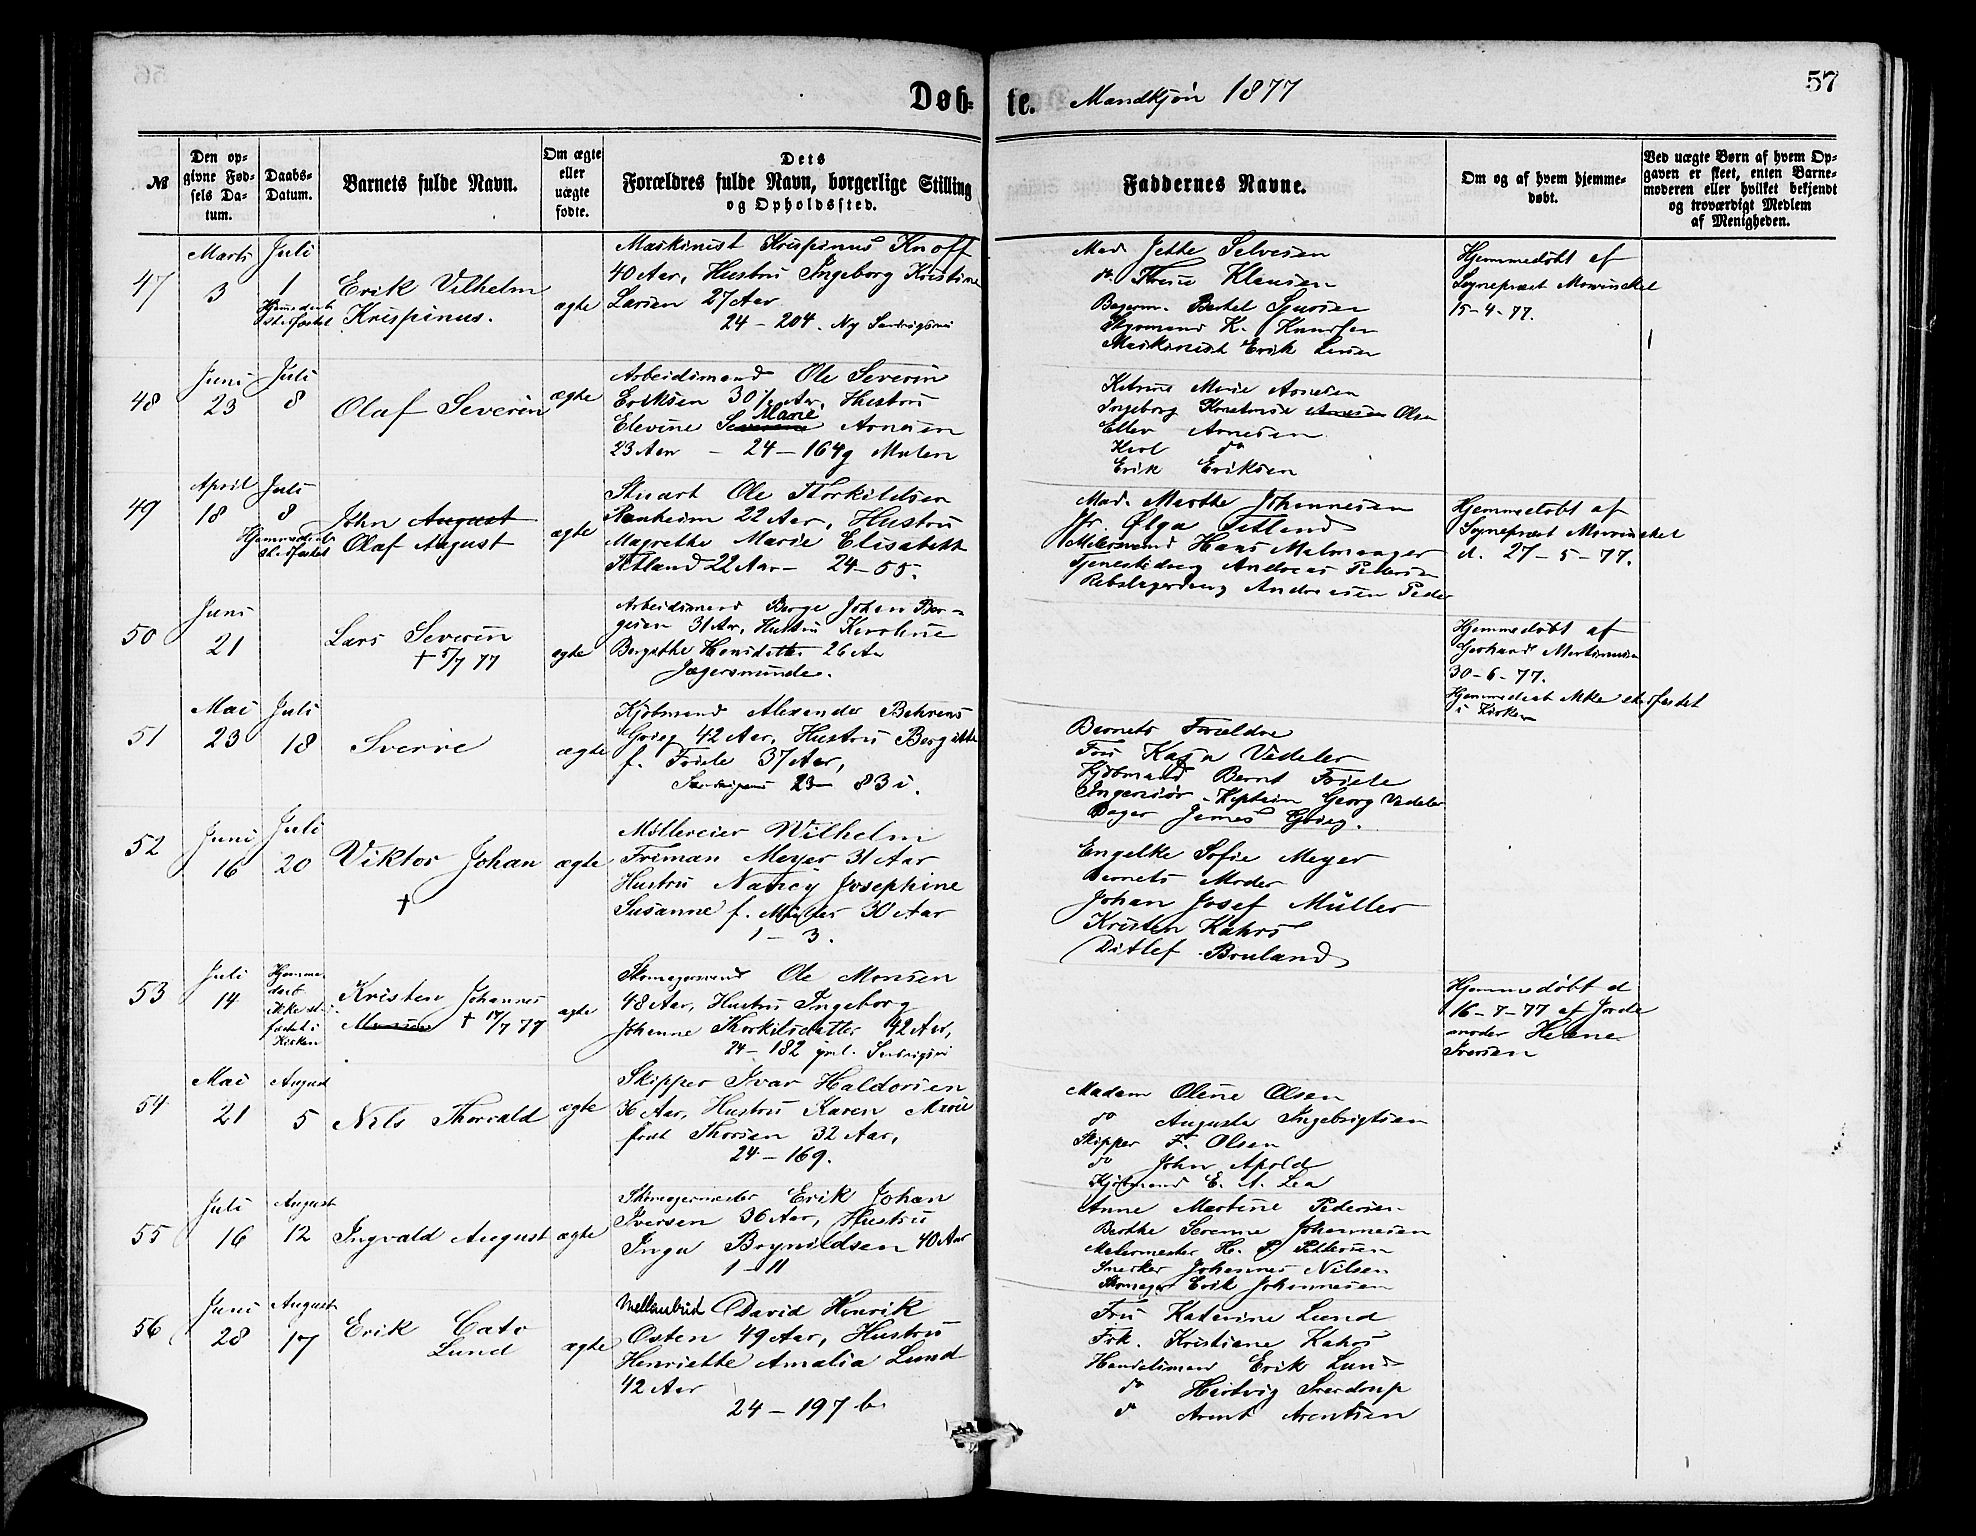 57
Døb- te. Mandkjøn 1877
№
Den op-
givne Fød-
sels Da-
tum.
Daabs-
Datum.
Barnets fulde Navn.
Om ægte
eller
uægte
fødte.
Dets
Forældres fulde Navn, borgerlige Stilling
og Opholdssted.
Faddernes Navne.
Om og af hvem hjemme-
døbt.
Ved uægte Børn af hvem Op-
gaven er skeet, enten Barne-
moderen eller hvilket bekjendt
og troværdigt Medlem
af Menigheden.
47
Marts
3
Juli
1
Erik Vilhelm
Krispinus.
ægte
Maskinist Krispinus Knoff
40 Aar, Hustru Ingeborg Kristine
Larsen 27 Aar
24 - 204. Ny Sandvigsvei
Mad. Jette Selvesen
do Klausen
Bertel
Styrmand K. Knudsen
Maskinist Erik
Hjemmedøbt af
Sognepræst Mowinckel
15-4-77.
48
Juni
23
Juli
8
Olaf Severin
ægte
Arbeidsmand Ole Severin
Eriksen 30½ Aar, Hustru
Marie
Elevine Severine Arnesen
23 Aar - 24 - 164g Mulen
Katrine Marie Arnesen
Ingeborg Arnesen Olsen
Ellev Arnesen
Karl do
Erik Eriksen
49
April
18
Juli
8
Hjemmedøbt
stadfæstet
John August
Olaf August
ægte
Stuart Ole Thorkildsen
22 Aar, Hustru
Magrethe Marie Elisabeth
Tetland 22 Aar - 24 - 55.
Mad. Marthe Johannesen
Jfr. Olga Tetland
Malersvend Hans Malmanger
Tjenestedreng Andreas Pedersen
Rebslagerdreng
Hjemmedøbt af
Sognepræst Mowinckel
d. 27-5-77.
50
Juni
21
Lars Severin
† 5/7 77
ægte
Arbeidsmand Børge Johan Bør-
gesen 31 Aar, Hustru
26 Aar
Jægersminde.
Hjemmedøbt af
Gerhard Martinusen
30-6-77.
Hjemmedaab ikke stadfæstet
i Kirken
51
Mai
23
Juli
18
Sverre
ægte
Kjøbmand Alexander Behrens
Grieg 42 Aar, Hustru Bergitte
f. Friele 37 Aar,
23 - 83 i.
Barnets Forældre
Fru Vedeler
Kjøbmand Bernt Friele
Ingeniør-Kaptein Georg Vedeler
Bager James Grieg.
52
Juni
16
Juli
20
Viktor Johan
†
ægte
Mølleeier Wilhelm
Friman Meyer 31 Aar
Hustru Nancy Josephine
Susanne f. Müller 30 Aar
1 - 3.
Engelke Sofie Meyer
Barnets Moder
Johan Josef Müller
Kristen Kahrs
Ditlef Bruland
53
Juli
14
Hjemme-
daab
ikke stad-
fæstet i
Kirken
Kristen Johannes
Monsen † 17/7 77
ægte
Skomagersvend Ole Monsen
48 Aar, Hustru Ingeborg
Johanne Thorkilsdatter 42 Aar,
24 - 182 gml. Sandvigsvei
Hjemmedøbt d
16-7-77 af Jorde-
moder Helene
Iversen
54
Mai
21
August
5
Nils Thorvald
ægte
Skipper Ivar Haldorsen
36 Aar, Hustru Karen Marie
født Thorsen 32 Aar,
24 - 169.
Madam Olene Olsen
do Augusta Ingebrigtsen
Skipper F. Olsen
do John Apold
Kjøbmand E. A. Lea
55
Juli
16
August
12
Ingvald August
ægte
Skomagermester Erik Johan
Iversen 36 Aar, Hustru
Inga Brynildsen 40 Aar
1 - 11
Anne Martine Pedersen
Berthe Serenne Johannesen
Malermester H. P. Pettersen
Snedker Johannes Nilsen
Skomager Erik Johannesen
56
Juni
28
August
17
Erik Cato
Lund
ægte
Mæglerbud David Henrik
Osten 49 Aar, Hustru
Henriette Amalia Lund
42 Aar
24 - 197 b.
Fru Katerine Lund
Frk. Kristiane Kahrs
Handelsmand Erik Lund
do Hartvig Sverdrup
do Arent Arentsen